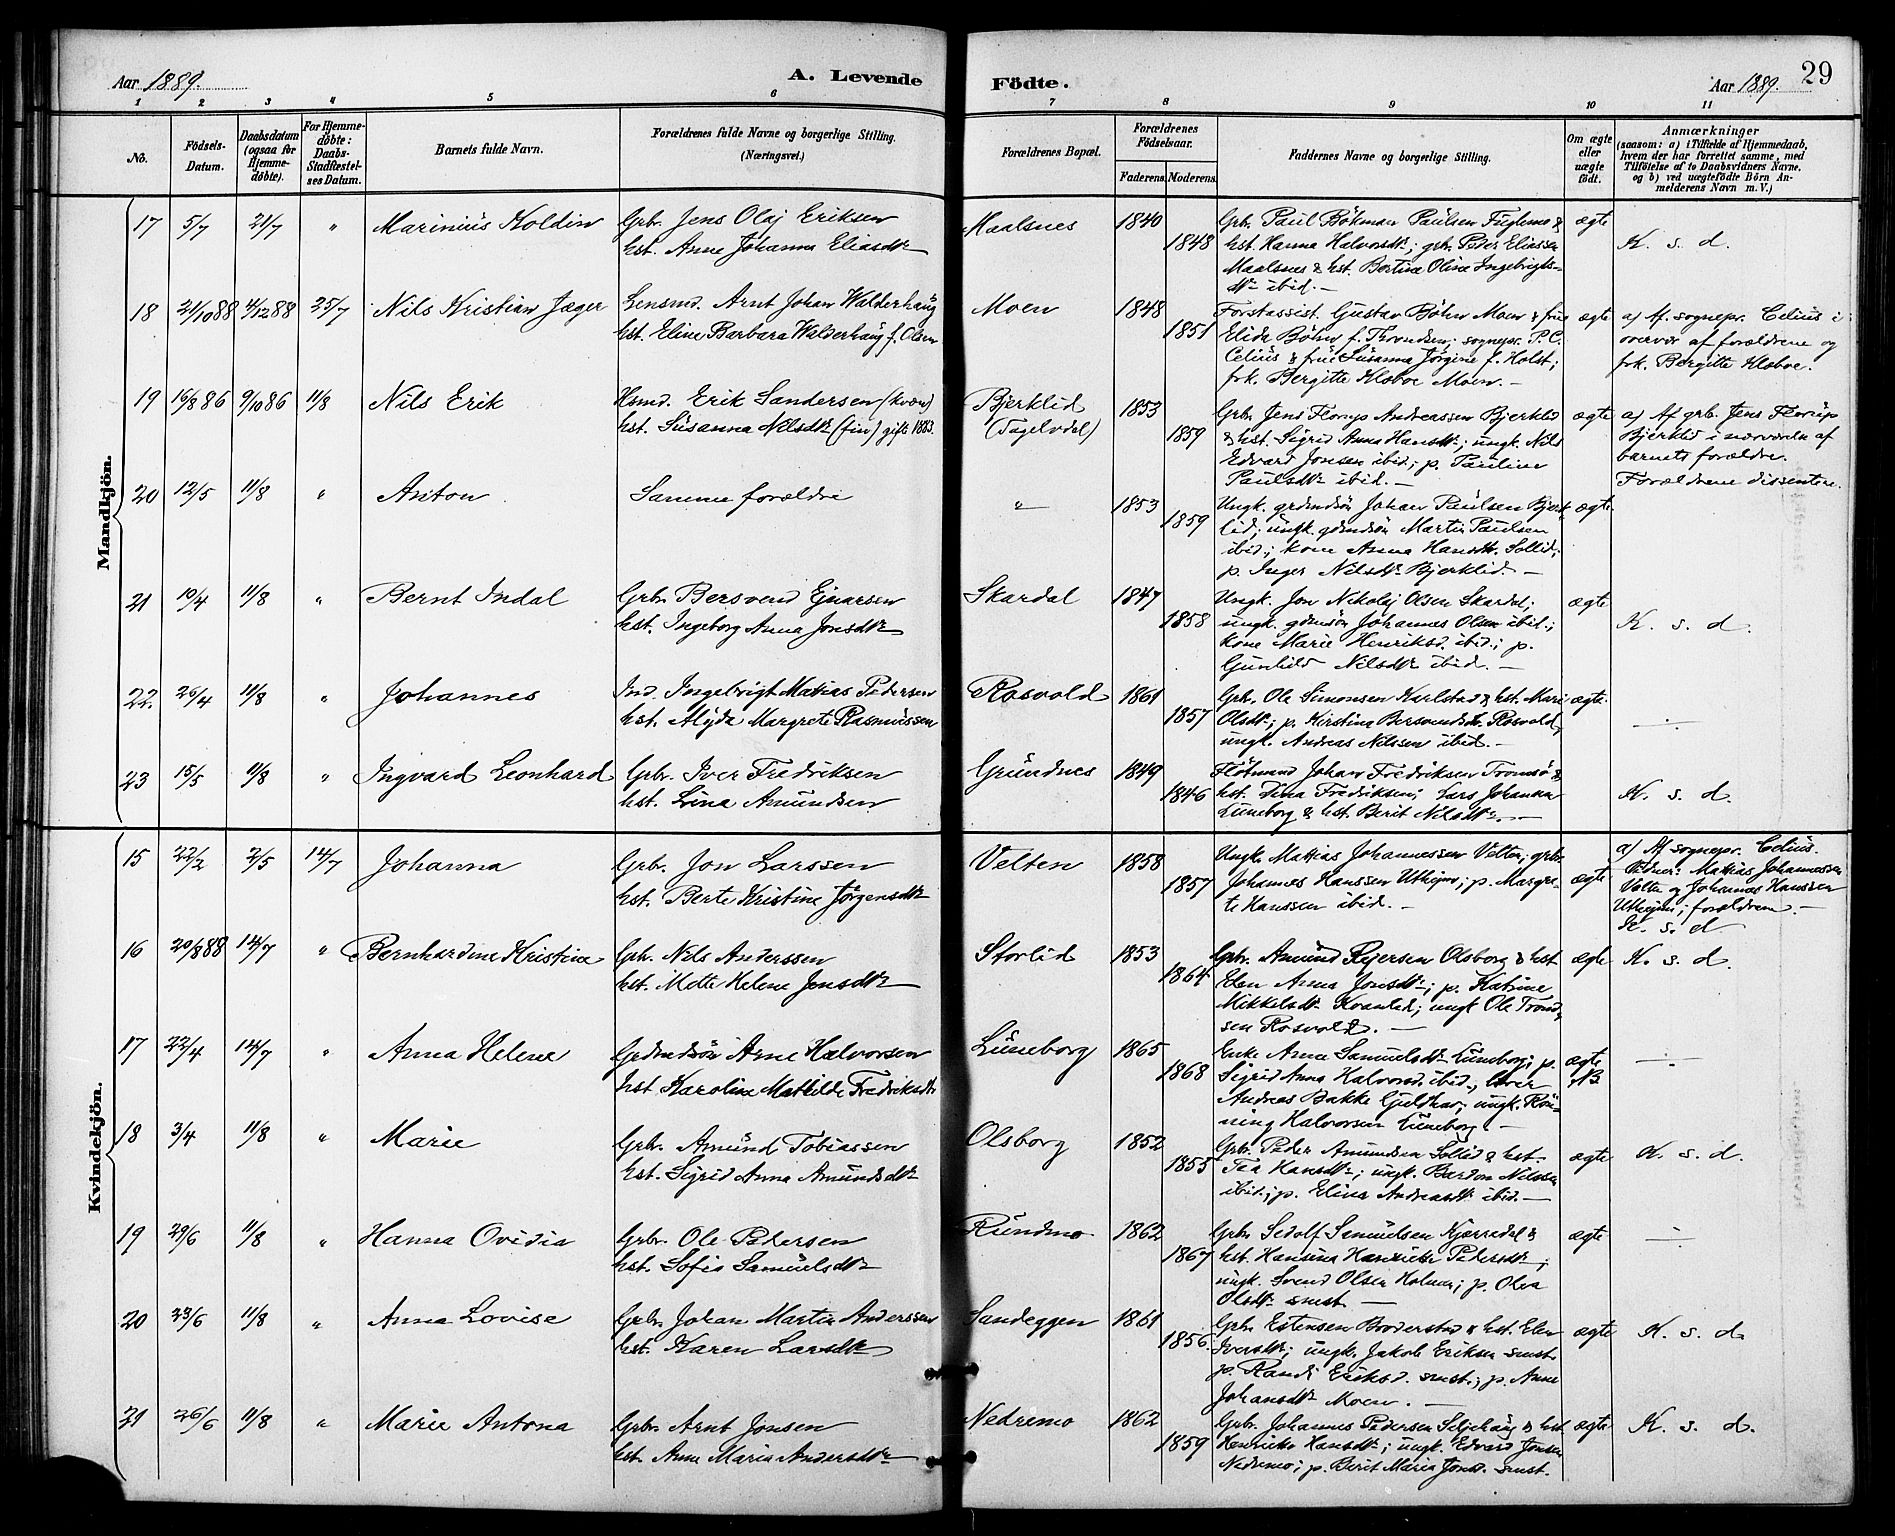 Aar 1889.
A. Levende
Födte.
Aar 1889.
29
1 2 3 4 5 6 7 8 9 10 11
No.
Födsels-
Datum.
Daabsdatum
(ogsaa for
Hjemme-
döbte).
For Hjemme-
döbte:
Daabs-
Stadfæstel-
ses Datum.
Barnets fulde Navn.
Forældrenes fulde Navne og borgerlige Stilling.
(Næringsvei.)
Forældrenes Bopæl.
Forældrenes
Födselsaar.
Faderens. Moderens.
Faddernes Navne og borgerlige Stilling.
Om ægte
eller
uægte
födt.
Anmærkninger
(saasom: a) i Tilfælde af Hjemmedaab,
hvem der har forrettet samme, med
Tilföielse af to Daabsvidners Navne,
og b) ved uægtefödte Börn An-
melderens Navn m. V.)
Mandkjön.
17 5/7 21/7 " Marinius Koldin
Grbr. Jens Olaj Eriksen
hst. Anne Johanna Eliasdtr
Maalsnes 1840 1848
Grbr. Paul Bökman Paulsen Fuglemo &
hst. Hanna Halvorsdtr; grbr. Peder Eliassen
Maalsnes & hst. Bertine Oline Ingebrigts-
dtr ibid. —
ægte
K. s. d.
18 21/10 88 4/12 88 25/7 Nils Kristian Jæger
Lensmd. Arnt Johan Walderhaug
hst. Eline Barbara Walderhaug f. Olsen
Moen 1848 1851
Forstassist. Gustav Böhn Moen & frue
Elida Böhn f. Throndsen; sognepr. P. C.
Celius & frue Susanna Jörgine f. Holst;
frk. Bergitte Klæboe Moen. —
ægte
a) Af sognepr. Celius i
overvær af forældrene og
frk. Bergitte Klæboe.
19 16/8 86 9/10 86 11/8 Nils Erik
Hsmd. Erik Sandersen (kvæn)
hst. Susanna Nilsdtr (fin) gift 1883.
Bjerklid
(Tagelvdal)
1853 1859
Grbr. Jens Florup Andreassen Bjerklid
& hst. Sigrid Anna Hansdtr; ungk. Nils
Edvard Jonsen ibid.; p. Pauline
Paulsdtr ibid. —
ægte
a) Af grb. Jens Florup
Bjerklid i nærværelse af
barnets forældre.
Forældrene dissentere.
20 12/5 11/8 " Anton
Samme forældre
" 1853 1859
Ungk. grdmdsön Johan Paulsen Bjerk-
lid; ungk. gdmdsön Martin Paulsen
ibid.; kone Anna Hansdtr. Sollid;
p. Inger Nilsdtr Bjerklid. —
ægte.
21 10/4 11/8 " Bernt Indal
Grbr. Bersvend Ejnarsen
hst. Ingeborg Anna Jonsdtr
Skardal 1847 1858
Ungk. Jon Nikolaj Olsen Skardal;
ungk. gdmdsön Johannes Olsen ibid.;
kone Marie Henriksd. ibid.; p.
Gunhild Nilsdtr ibid. —
ægte
K. s. d.
22. 26/4 11/8 " Johannes
Ind. Ingebrigt Matias Pedersen
hst. Alyda Margrete Rasmussen
Rosvold 1861 1857
Grbr. Ole Simonsen Karlstad & hst. Mari
Olsdtr; p. Kirstina Bersvendsdtr. Rosvold,
ungk. Andreas Nilssen ibid. —
ægte.
23 15/5 11/8 " Ingvard Leonhard
Grbr. Iver Fredriksen
hst. Lina Amundsen
Grundnes 1849 1846
Flötmand Johan Fredriksen Tromsö &
hst. Dina Fredriksen; Lars Johansen
Luneborg & hst. Berit Nilsdtr. —
K. s. d.
Kvindekjön.
15 22/2 2/5 14/7 Johanna
Grbr. Jon Larssen
hst. Berte Kristine Jörgensdtr
Velten 1858 1857
Ungk. Mattias Johannessen Velten; grbr.
Johannes Hanssen Utheim; p. Margre-
te Hanssen ibid. —
ægte
a) Af sognepr. Celius.
Vidner: Mattias Johannessen
Velten og Johannes Hanssen
Utheim; forældrene. —
K. s. d
16 20/8 88 14/7 " Bernhardine Kristine
Grbr. Nils Anderssen
hst. Mette Helene Jensdtr
Storlid 1853 1864
Grbr. Amund Rejersen Olsborg & hst
Elen Anna Jonsdtr; p. Katrine
Mikkelsdtr Kvanlid; ungk Ole Trond-
sen Rosvold. —
ægte
K. s. d.
17 22/4 14/7 " Anna Helene
Grdmdsön Arne Halvorsen
hst Karoline Mathilde Fredriksdtr
Luneborg 1865 1868
Enke Anne Samuelsdtr Luneborg; p.
Sigrid Anna Halvorsd. ibid.; lærer
Andreas Bakke Guldhav; ungk. Rön-
ning Halvorsen Luneborg. —
ægte
NB
18 3/4 11/8 " Marie
Grbr. Amund Tobiassen
hst. Sigrid Anna Amundsdtr
Olsborg 1852 1855
Grbr. Peder Amundsen Sollid & hst
Tea Hansdtr; ungk. Bardon Nilssen
ibid.; p. Elina Andreasdtr ibid. —
ægte
K. s. d.
19 29/6 11/8 " Hanna Ovidia
Grbr. Ole Pedersen
hst. Sofie Samuelsdtr
Rundmo 1862 1867
Grbr Sedolf Samuelsen Kjærredal &
hst. Hansina Henrikke Pedersdtr;
ungk. Svend Olsen Holmen; p. Olea
Olsdtr smst —
ægte
20 23/6 11/8 " Anna Lovise
Grbr. Johan Martin Anderssen
hst. Karen Larsdtr
Sandeggen 1861 1856.
Grbr. Estensen Brodersted & hst. Elen
Iversdtr; ungk. Jakob Eriksen smst.
p. Randi Eriksd. smst.; p. Anne
Johansdtr Moen. —
ægte
K. s. d.
21 26/6 11/8 " Marie Antona
Grbr. Arnt Jonsen
hst. Anne Maria Andersdtr
Nedremo 1862 1859
Grbr. Johannes Pedersen Seljehaug & hst
Henrikke Hansdtr; ungk. Edvard Jonsen
Nedremo; p. Berit Maria Jonsd. smst.
ægte
K. s. d.